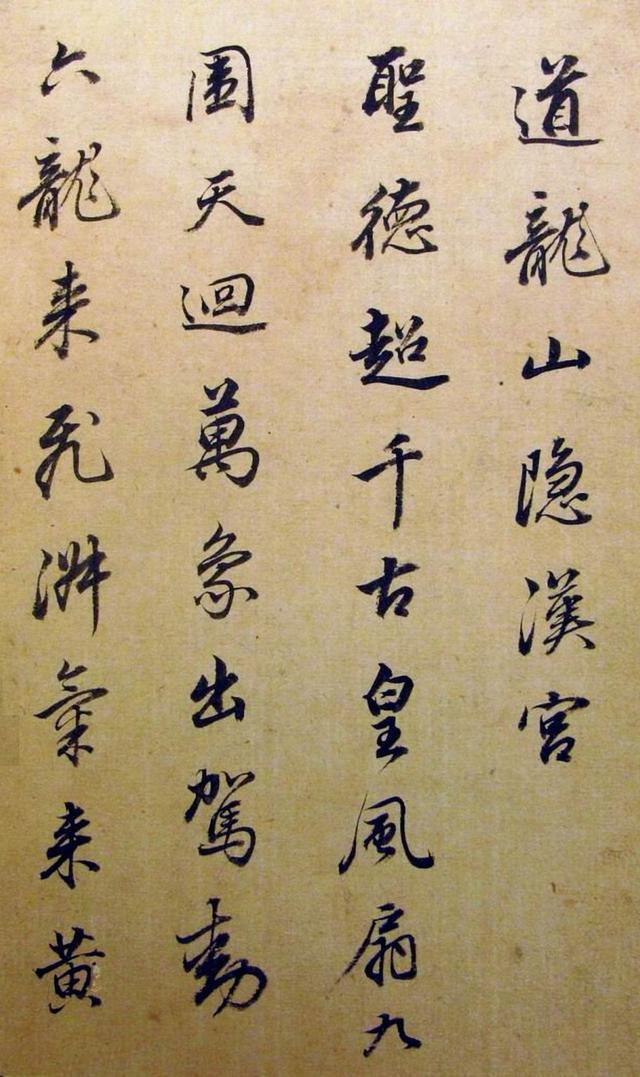 道龍山隐漢宮
聖徳超千古皇風扇九
圍天迴萬象出駕動
六龍来飛淑氣来黄